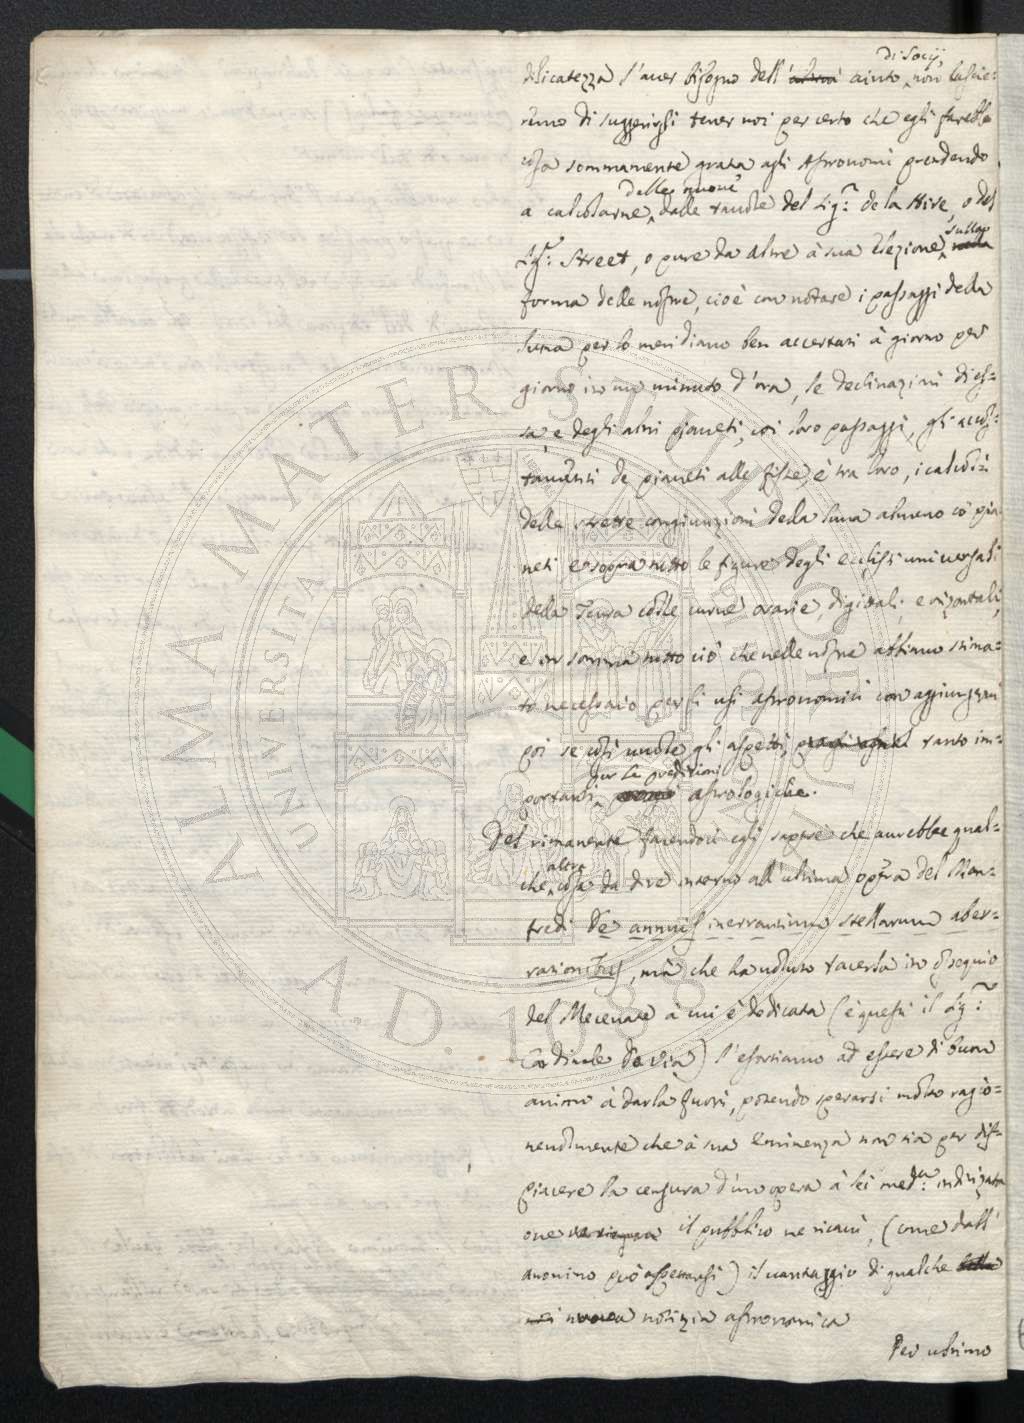 di Socij,
dilicatezza l'aver bisogno dell' altrui aiuto, non lascie=
remo di suggerirgli tener noi per certo che egli farebbe
cosa sommamente grata agli Astronomi prendendo
dalle nuove
a calcolarne, dalle tavole del Sig.r de la Hire, o del
Sig.r Street, o pure da altre à sua elezione, sulla
forma delle nostre, cioè con notare i passaggi della
luna per lo meridiano ben accertati à giorno per
giorno in un minuto d'ora, le declinazioni di es=
sa, e degli altri pianeti, coi loro passaggi, gli accos=
tamenti de pianeti alle fisse, è tra loro, i calcoli
delle strette congiunzioni della luna almeno cò pia=
neti e sopra tutto le figure degli ecclissi universali
della Terra colle curve orarie, digitali, e orizontali,
e in somma tutto ciò che nelle nostre abbiamo stima=
to necessario per li usi astronomici con aggiungervi
poi se così vuole gli aspetti, tanto im=
per le predizioni
portanti, astrologiche.
Del rimanente facendoci egli sapere che avrebbe qual=
altra
che, cosa da dire intorno all' ultima opera del Man=
fredi De annuis inerrantium stellarum aber=
rationibus, mà che ha voluto tacerla in ossequio
del Mecenate à cui è dedicata (è questi il Sig.r
Cardinale Davia) l'esortiamo ad essere di buon
animo à darla fuori, potendo sperarsi molto ragio=
nevolmente che à sua Eminenza non sia per dis=
piacere la censura d'un opera à lei med.a indirizzata
ove il pubblico ne ricavi, (come dall'
anonimo può aspettarsi) il vantaggio di qualche
nuova notizia astronomica
Per ultimo
ALMA MATER STUDIORUM
UNIVERSITA DI BOLOGNA
A.D. 1088